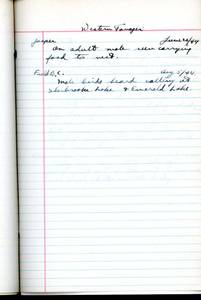 Western Tanager
Jasper June 26/44
An adult male seen carrying
food to nest.
Field B.C. Aug 5/44
Male birds heard calling at
Lake & Emerald Lake.